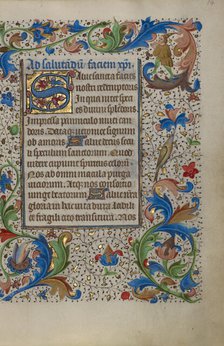 Ad salutadū faciem xpi.
Salue sancta facies
nostri redemptoris
In qua nitet spe
cies diuini splendoris
Impressa panniculo niuei can
doris Dataq; ueronice signum
ob amoris Salue decus se
culi speculum sanctorum Quod
uidere cupiunt spiritus celorū
Nos ab omni macula purga
uitiorum Atq; nos consortio
iunge beatorum Salue nostra
gloria in hac uita dura Labili
et fragili cito transitura Nos